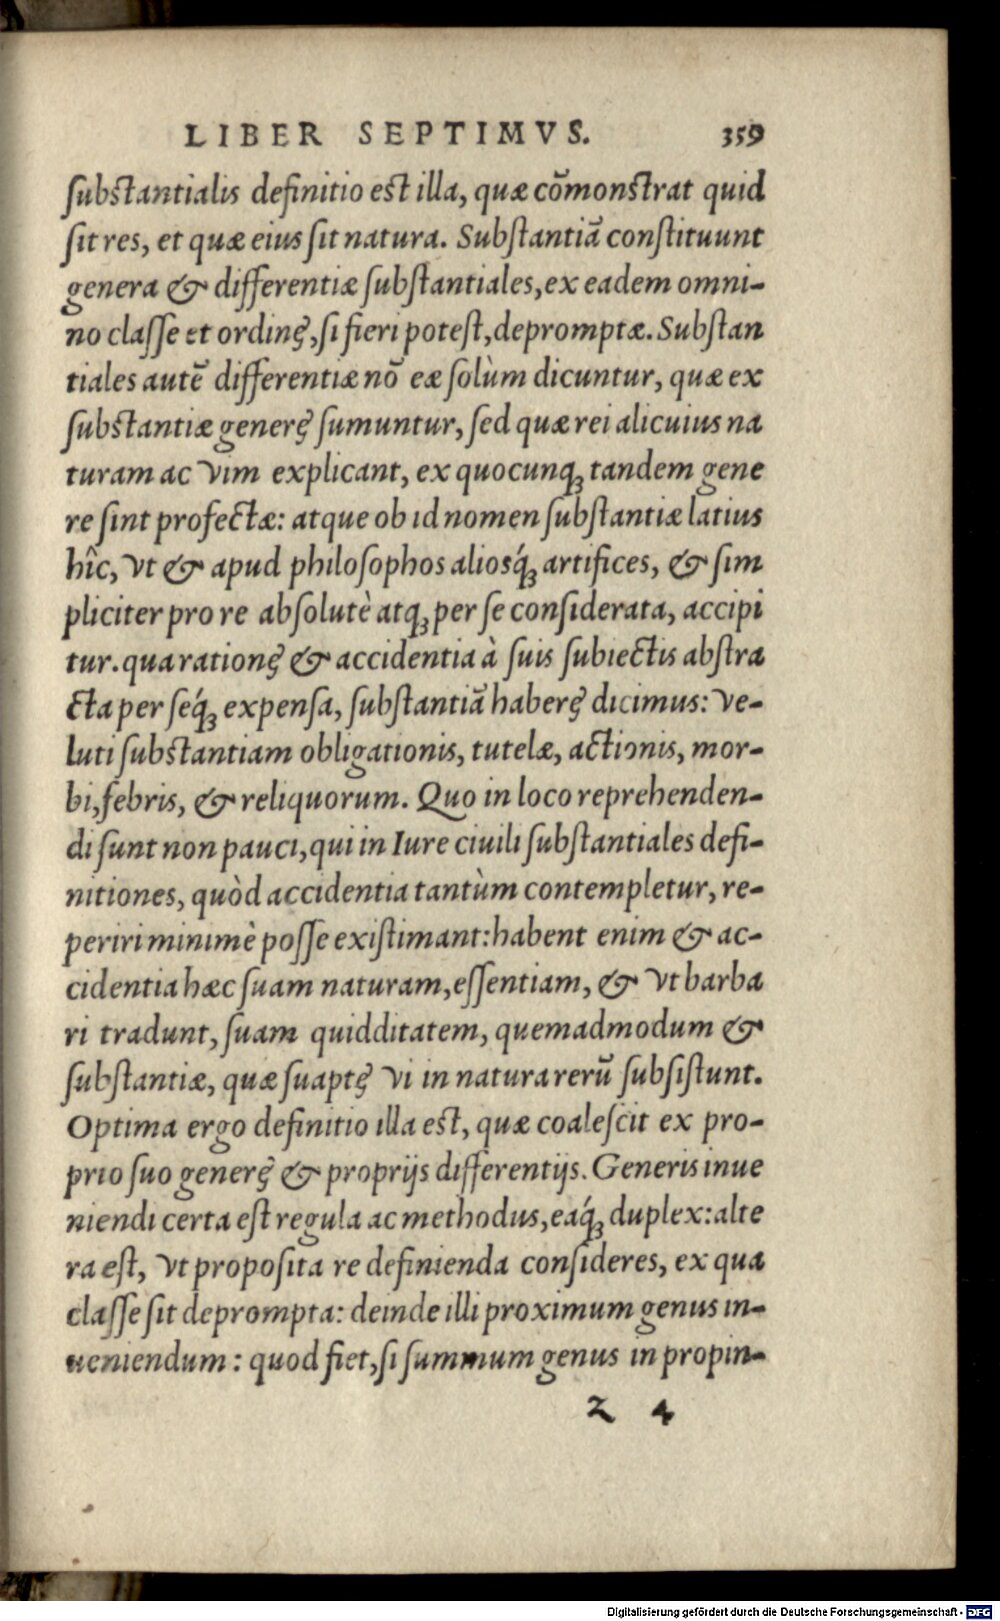 LIBER SEPTIMVS. 359
ſubſtantialis definitio eſt illa, quæ cõmonſtrat quid
ſit res, et quæ eius ſit natura. Subſtantiã conſtituunt
genera & differentiæ ſubſtantiales, ex eadem omni-
no claſſe et ordine, ſi fieri poteſt, depromptæ. Subſtan
tiales autẽ differentiæ nõ eæ ſolùm dicuntur, quæ ex
ſubſtantiæ genere ſumuntur, ſed quæ rei alicuius na
turam ac vim explicant, ex quocunq; tandem gene
re ſint profectæ: atque ob id nomen ſubſtantiæ latius
hîc, vt & apud philoſophos aliosq́; artifices, & ſim
pliciter pro re abſolutè atq; per ſe conſiderata, accipi
tur. qua ratione & accidentia à ſuis ſubiectis abſtra
cta per ſeq́; expenſa, ſubſtantiã habere dicimus: ve-
luti ſubſtantiam obligationis, tutelæ, actionis, mor-
bi, febris, & reliquorum. Quo in loco reprehenden-
di ſunt non pauci, qui in Iure ciuili ſubſtantiales defi-
nitiones, quòd accidentia tantùm contempletur, re-
periri minimè poſſe exiſtimant: habent enim & ac-
cidentia hæc ſuam naturam, eſſentiam, & vt barba
ri tradunt, ſuam quidditatem, quemadmodum &
ſubſtantiæ, quæ ſuapte vi in natura rerũ ſubſiſtunt.
Optima ergo definitio illa eſt, quæ coaleſcit ex pro-
prio ſuo genere & proprijs differentijs. Generis inue
niendi certa eſt regula ac methodus, eaq́; duplex: alte
ra eſt, vt propoſita re definienda conſideres, ex qua
claſſe ſit deprompta: deinde illi proximum genus in-
ueniendum: quod fiet, ſi ſummum genus in propin-
z 4
Digitalisierung gefördert durch die Deutsche Forschungsgemeinschaft - DFG